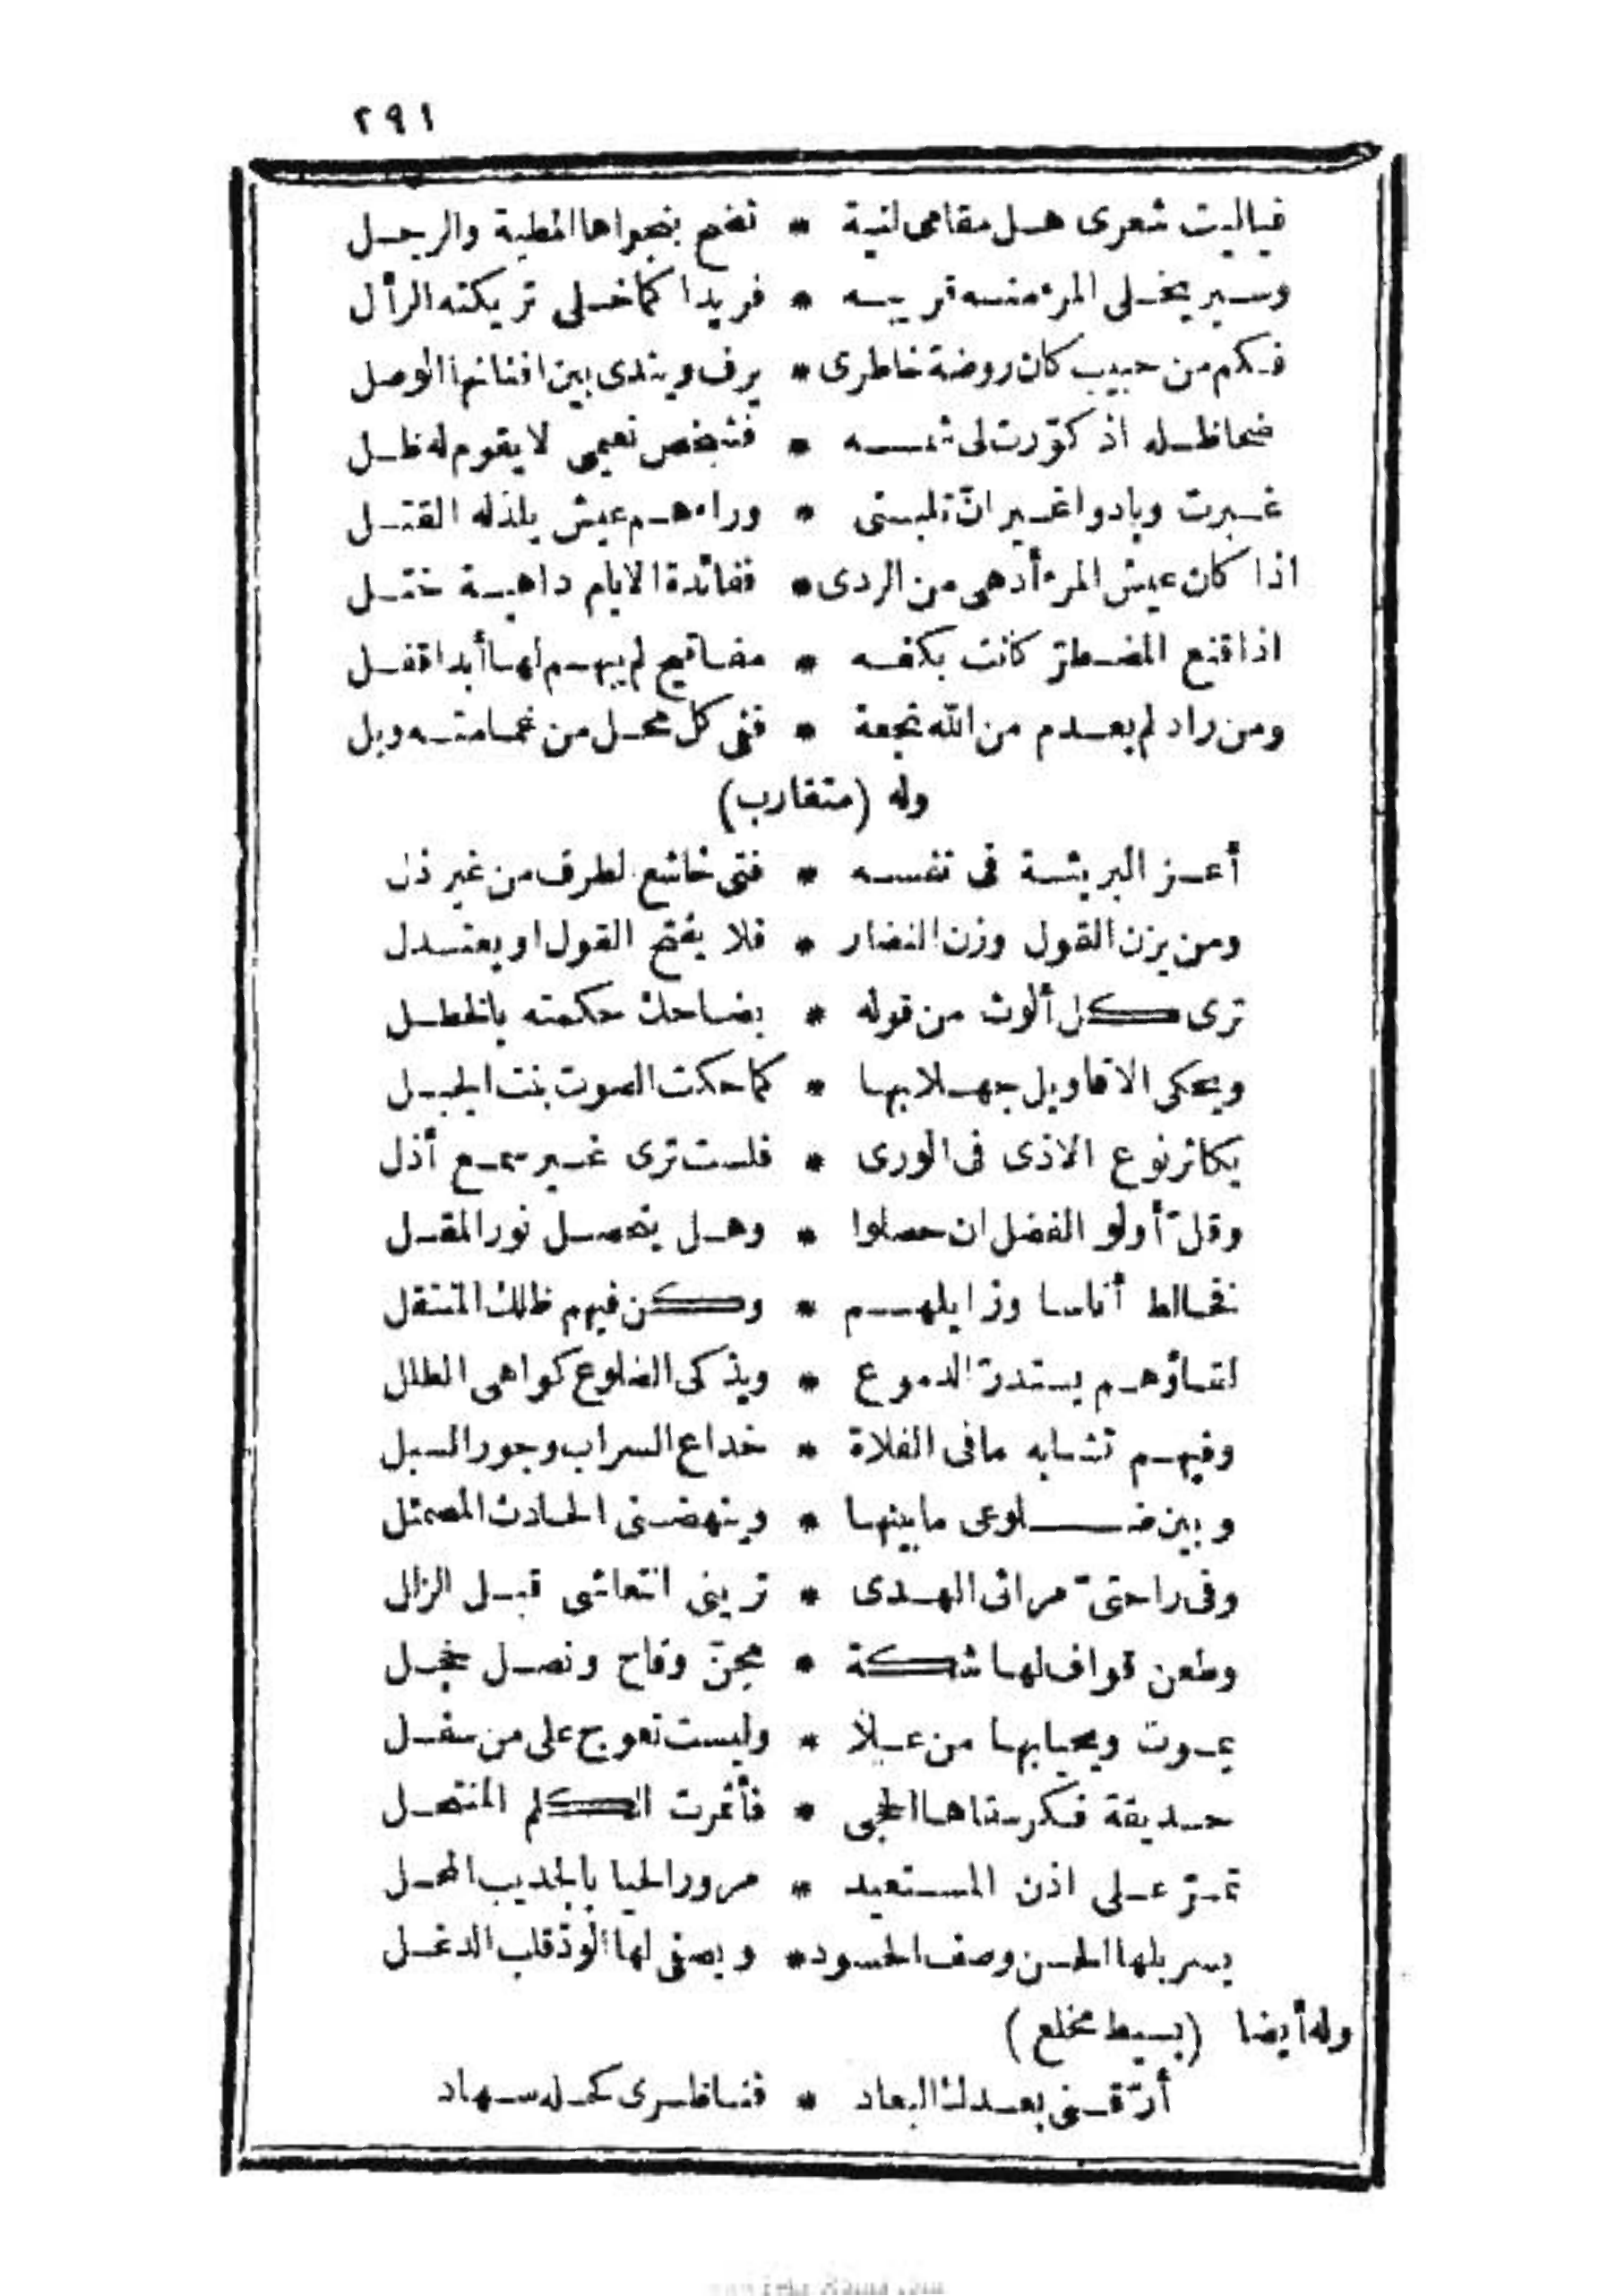 ٢٩١
فياليت شعرى هل مقامى لنية * تضج بنجواها المطية والرحل
وسير يخلى المرء منه قريبه * فريدا كما خلى تريكته الرأل
فكم من حبيب كان روضة خاطرى * يرف ويندى بين افنانها الوصل
ضحا ظله اذ كوّرت لى شمسه * فشخص نعيمى لا يقوم له ظل
غبرت وبادوا غير انّ تلبثى * وراءهم عيش يلذ له القتل
اذا كان عيش المرء أدهى من الردى * ففائدة الايام داهية ختل
اذا قنع المضطرّ كانت بكفه * مفاتيح لم يبهم لها أبدا قفل
ومن راد لم يعدم من الله نجعة * ففى كل محل من غمامته وبل
وله (متقارب)
أعز البرية فى نفسه * فتى خاشع لطرف من غير ذل
ومن يزن القول وزن النضار * فلا يفتح القول او يعتدل
ترى كل ألوث من قوله * يضاحك حكمته بالخطل
ويحكى الاقاويل جهلا بها * كما حكت الصوت بنت الجبل
يكاثر نوع الاذى فى الورى * فلست ترى غير سمع أذل
وقلّ أولو الفضل ان حصلوا * وهل يتحصل نور المقل
فخالط أناسا وزايلهم * وكن فيهم ظلك المتنقل
لقاؤهم يستدرّ الدموع * ويذكى الضلوع كواهى الطلل
وفيهم تشابه ما فى الفلاة * خداع السراب وجور السبل
وبين ضلوعى ما بينها * وينهضنى الحادث المصمئل
وفى راحتىّ مرائى الهدى * ترينى انتعاشى قبل الزلل
وطعن قواف لها شكة * مجنّ وقاح ونصل خجل
يموت ويحيا بها من علا * وليست تعوج على من سفل
حديقة فكر سقاها الحجى * فأثمرت الكلم المنتحل
تمرّ على اذن المستعيد * مرور الحيا بالجديب المحل
يسربلها الحسن وصف الحسود * ويصفى لها الودّ قلب الدغل
وله أيضا (بسيط مخلع)
أرّقنى بعدك البعاد * فناظرى كحله سهاد